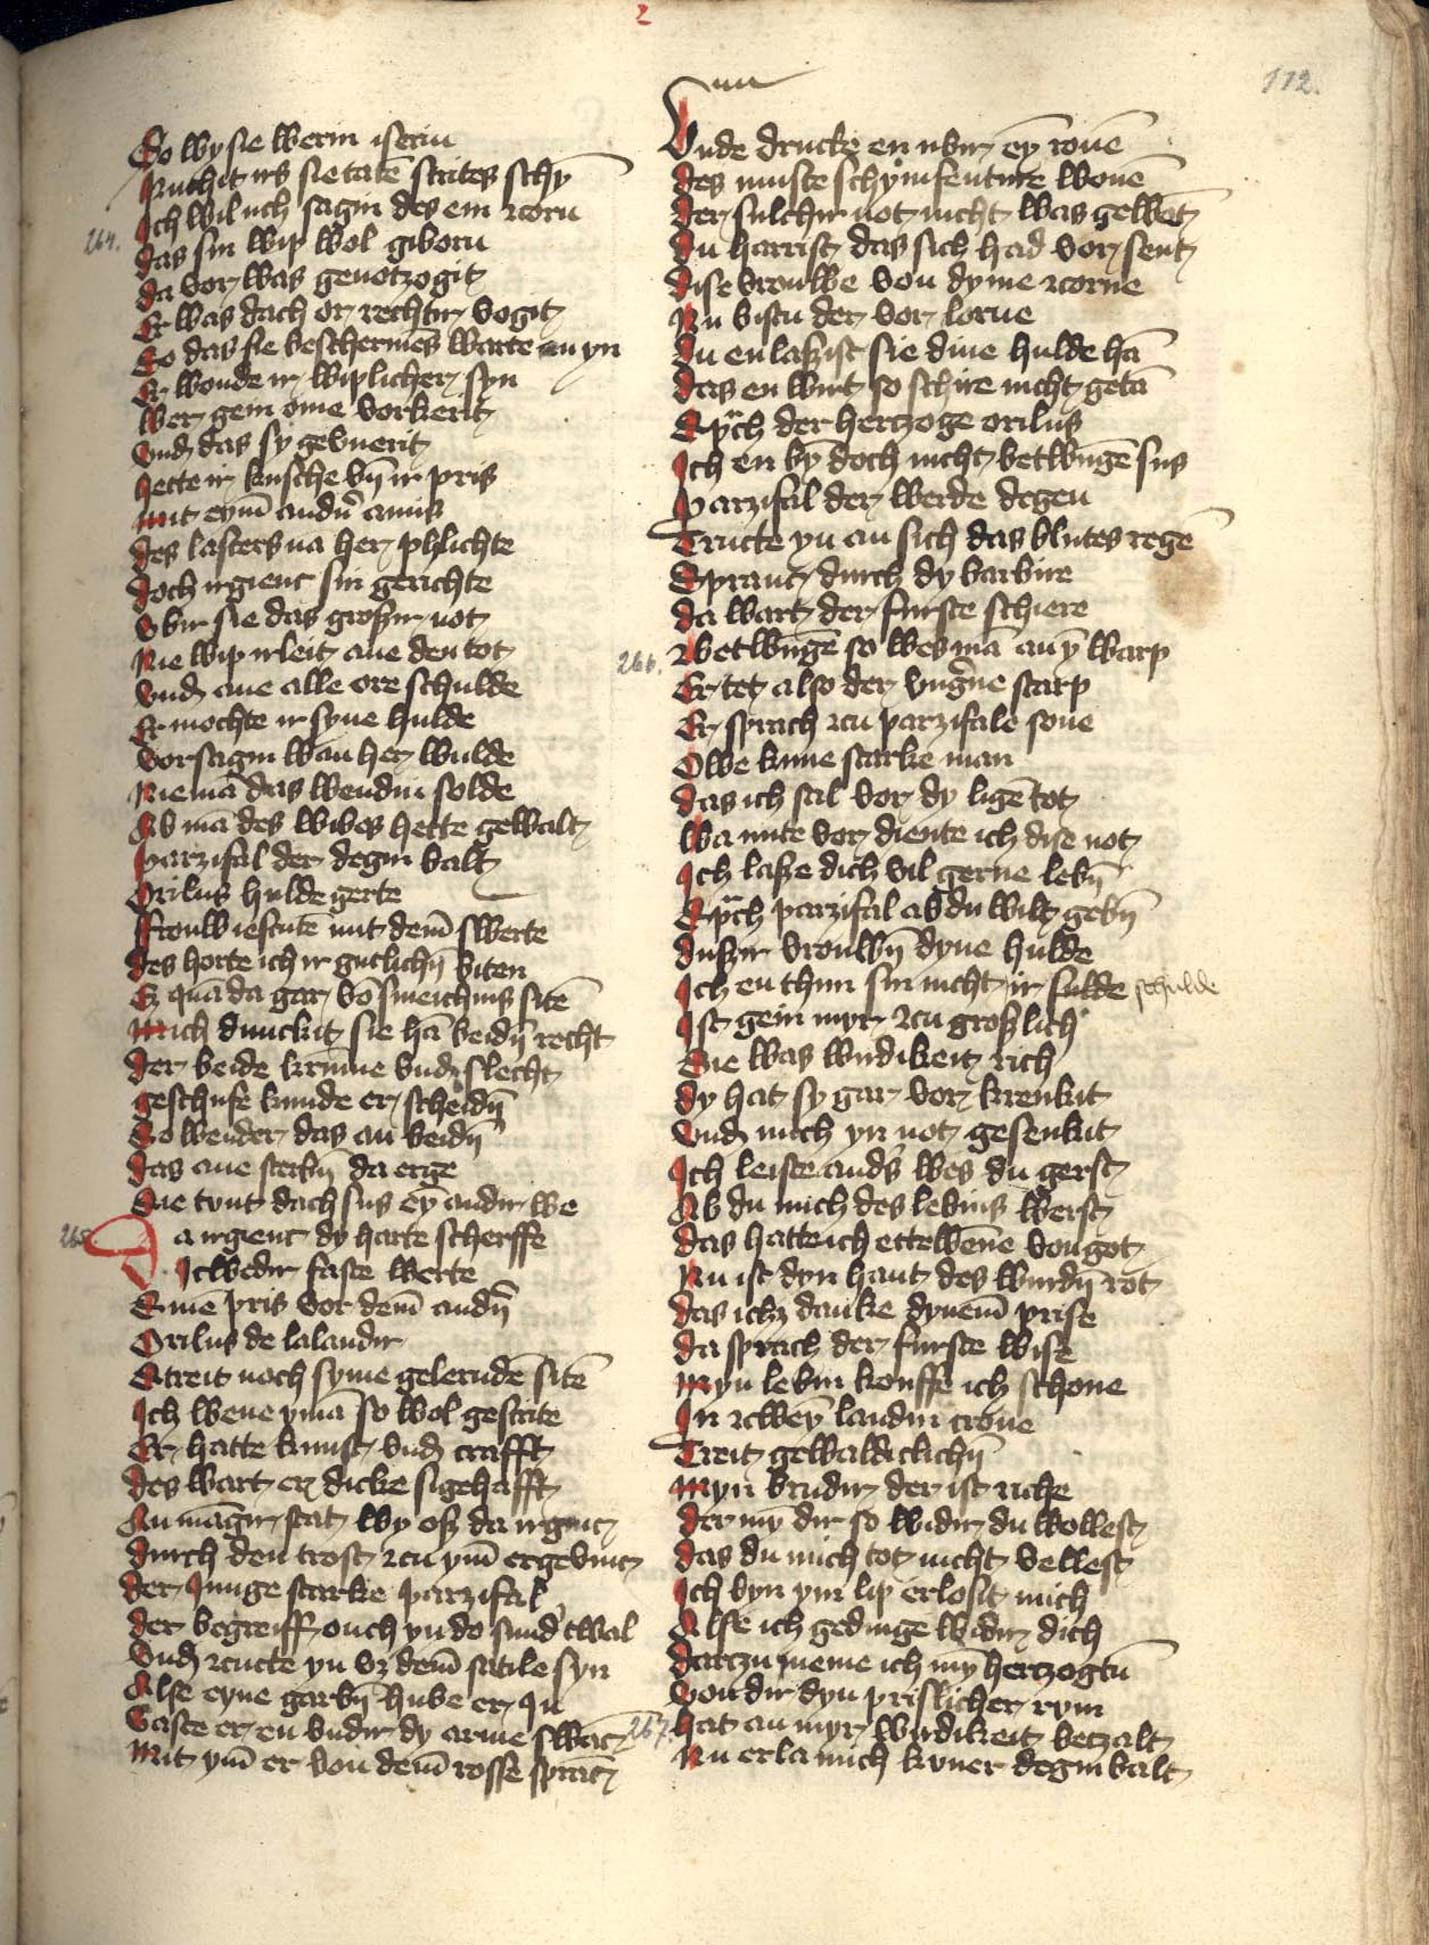 2
112.
So wy sie werin iserin
Nuthit irs sie tatē strites schȳ
Ich wil uch sagin des ein zcorn
264.
das sin wip wol giborn
da vor was genotzogit
Er was dach or rechtir vogit
So das sie beschermēs warte an yn
Er wonde ir wiplicher syn
Wer gein ome vorkerit
vnd das sy gevnerit
hette ir kusche vn̄ ir pris
mit eym̄ andn̄ amis
des lasters na her phlichte
doch irgienc sin gerichte
obir sie das groszir not
Nie wip irleit ane den tot
vnd ane alle ore schulde
Er mochte ir syne hulde
vorsagin wan her wulde
Niemā das wendin solde
Ab mā des wibes hette gewalt
parzifal der degin balt
Orilus hulde gerte
ffrouw iescutē mit dem̄ swerte
des horte ich ir gutlichn̄ biten
Ez quā da gar vō smeichins sitē
mich dunckit sie hā beidn̄ recht
der beide krūme vnd slecht
geschufe kunde er scheidn̄
So wender das an beidn̄
das ane sterbn̄ da erge
Sie tvnt dach sus ey andir we
265.
Da irgienc dy harte scherffe
Icwedir faste werte
Sinē pris vor dem̄ andn̄
Orilus de lalandir
Streit noch syme gelerndē sitē
Ich wene ymā so wol gestrite
Er hatte kunst vnd crafft
des wart er dicke sigehafft
An māgir stat wy osz da irginc
durch den trost zcu ym̄ ergevinc
der Junge starke parzifal
der begreiff ouch yn do sund' twal
vnd zcucte yn vz dem̄ satile syn
Alse eyne garbn̄ hube er In
vaste er en vndir dy arme swāc
Mit ym̄ er von dem̄ rosse sprāc
Vnde drucke en ubir ey ronē
des muste schymfenture wonē
der sulchir not nicht was gewēt
du harrist das sich had vor sent
dise vrouwe von dyme zcorne
Nu bistu der vor lorne
du en laszist sie dine hulde hā
das en wirt so schire nicht getā
Sprch der hertzoge orilus
Ich en by doch nicht betwugē sus
parzifal der werde degen
Tructe yn an sich das blutes regē
Spranc durch dy barbire
da wart der furste schiere
266.
Betwngē so wes mā an y warp
Er tet also der vngne starp
Er sprach zcu parzifale sone
Owe kune starke man
das ich sal vor dy ligē tot
Wa mite vor diente ich dise not
Ich lasze dich vil gerne lebn̄
Sprch parzifal ab du wilt gebn̄
duszir vrouwn̄ dyne hulde
Ich en thun sin nicht ir sulde schulde
Ist gein myr zcu groszlich
Sie was wirdikeit rich
dy hat sy gar vor krenkit
vnd mich yn not gesenkit
Ich leiste anders wes du gerst
Ab du mich des lebins werst
das hatte ich ettewēne von got
Nu ist dyn hant des wurdn̄ rot
das ichz danke dynem̄ prise
da sprach der furste wise
myn lebin kouffe ich schone
In zcwey landin crone
Treit gewaldiclichn̄
myn brudir der ist riche
der my dir so widir du wollest
das du mich tot nicht vellest
Ich byn ym lip erlosit mich
Alse ich gedinge widir dich
darczu neme ich my hertzogtū
von dir dyn prislicher rvm
267.
hat an myr wirdikeit betzalt
Nu erla mich kvner degin balt